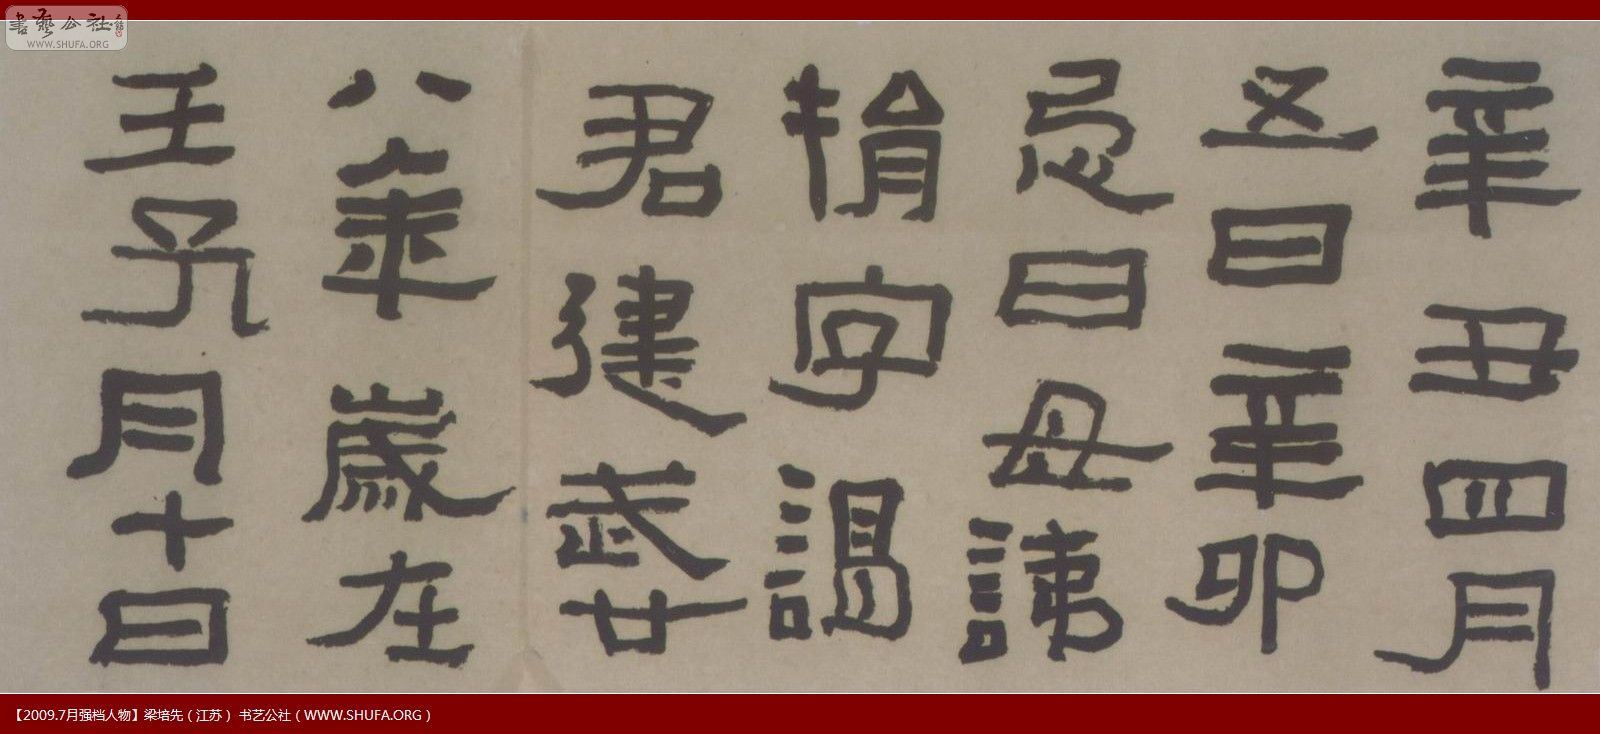 書藝公社
WWW.SHUFA.ORG
辛丑四月
五日辛卯
忌日母諱
捐字謁
君建武廿
八年歲在
壬子月十日
【2009.7月强档人物】梁培先（江苏） 书艺公社（WWW.SHUFA.ORG）